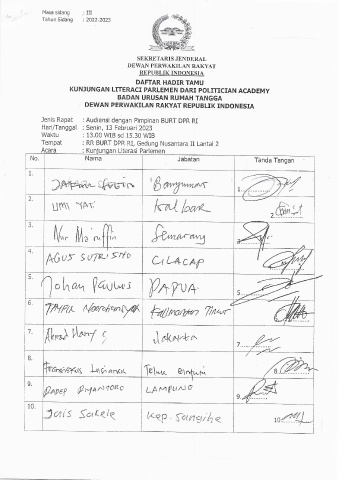 Masa sidang : III
Tahun Sidang : 2022-2023
SEKRETARIS JENDERAL
DEWAN PERWAKILAN RAKYAT
REPUBLIK INDONESIA
DAFTAR HADIR TAMU
KUNJUNGAN LITERACI PARLEMEN DARI POLITICIAN ACADEMY
BADAN URUSAN RUMAH TANGGA
DEWAN PERWAKILAN RAKYAT REPUBLIK INDONESIA
Jenis Rapat : Audiensi dengan Pimpinan BURT DPR RI
Hari/Tanggal : Senin, 13 Februari 2023
Waktu : 13.00 WIB sd 15.30 WIB
Tempat : RR BURT DPR RI, Gedung Nusantara II Lantai 2
Acara : Kunjungan Literasi Parlemen
No. Nama Jabatan Tanda Tangan
1. Banyumas 1.
2. UMI YATI Kalbar 2.
3. Nur Ma'ruffin Semarang 3.
4. AGUS SUTRISNO CILACAP
5. Johan Paulus PAPUA 5.
6. Kalimantan Timur 6.
7. Ahmad Jakarta 7.
8. Fransiskus Teluk Bintuni 8.
9. LAMPUNG 9.
10. Jais Sakele Kep. Sangihe 10.